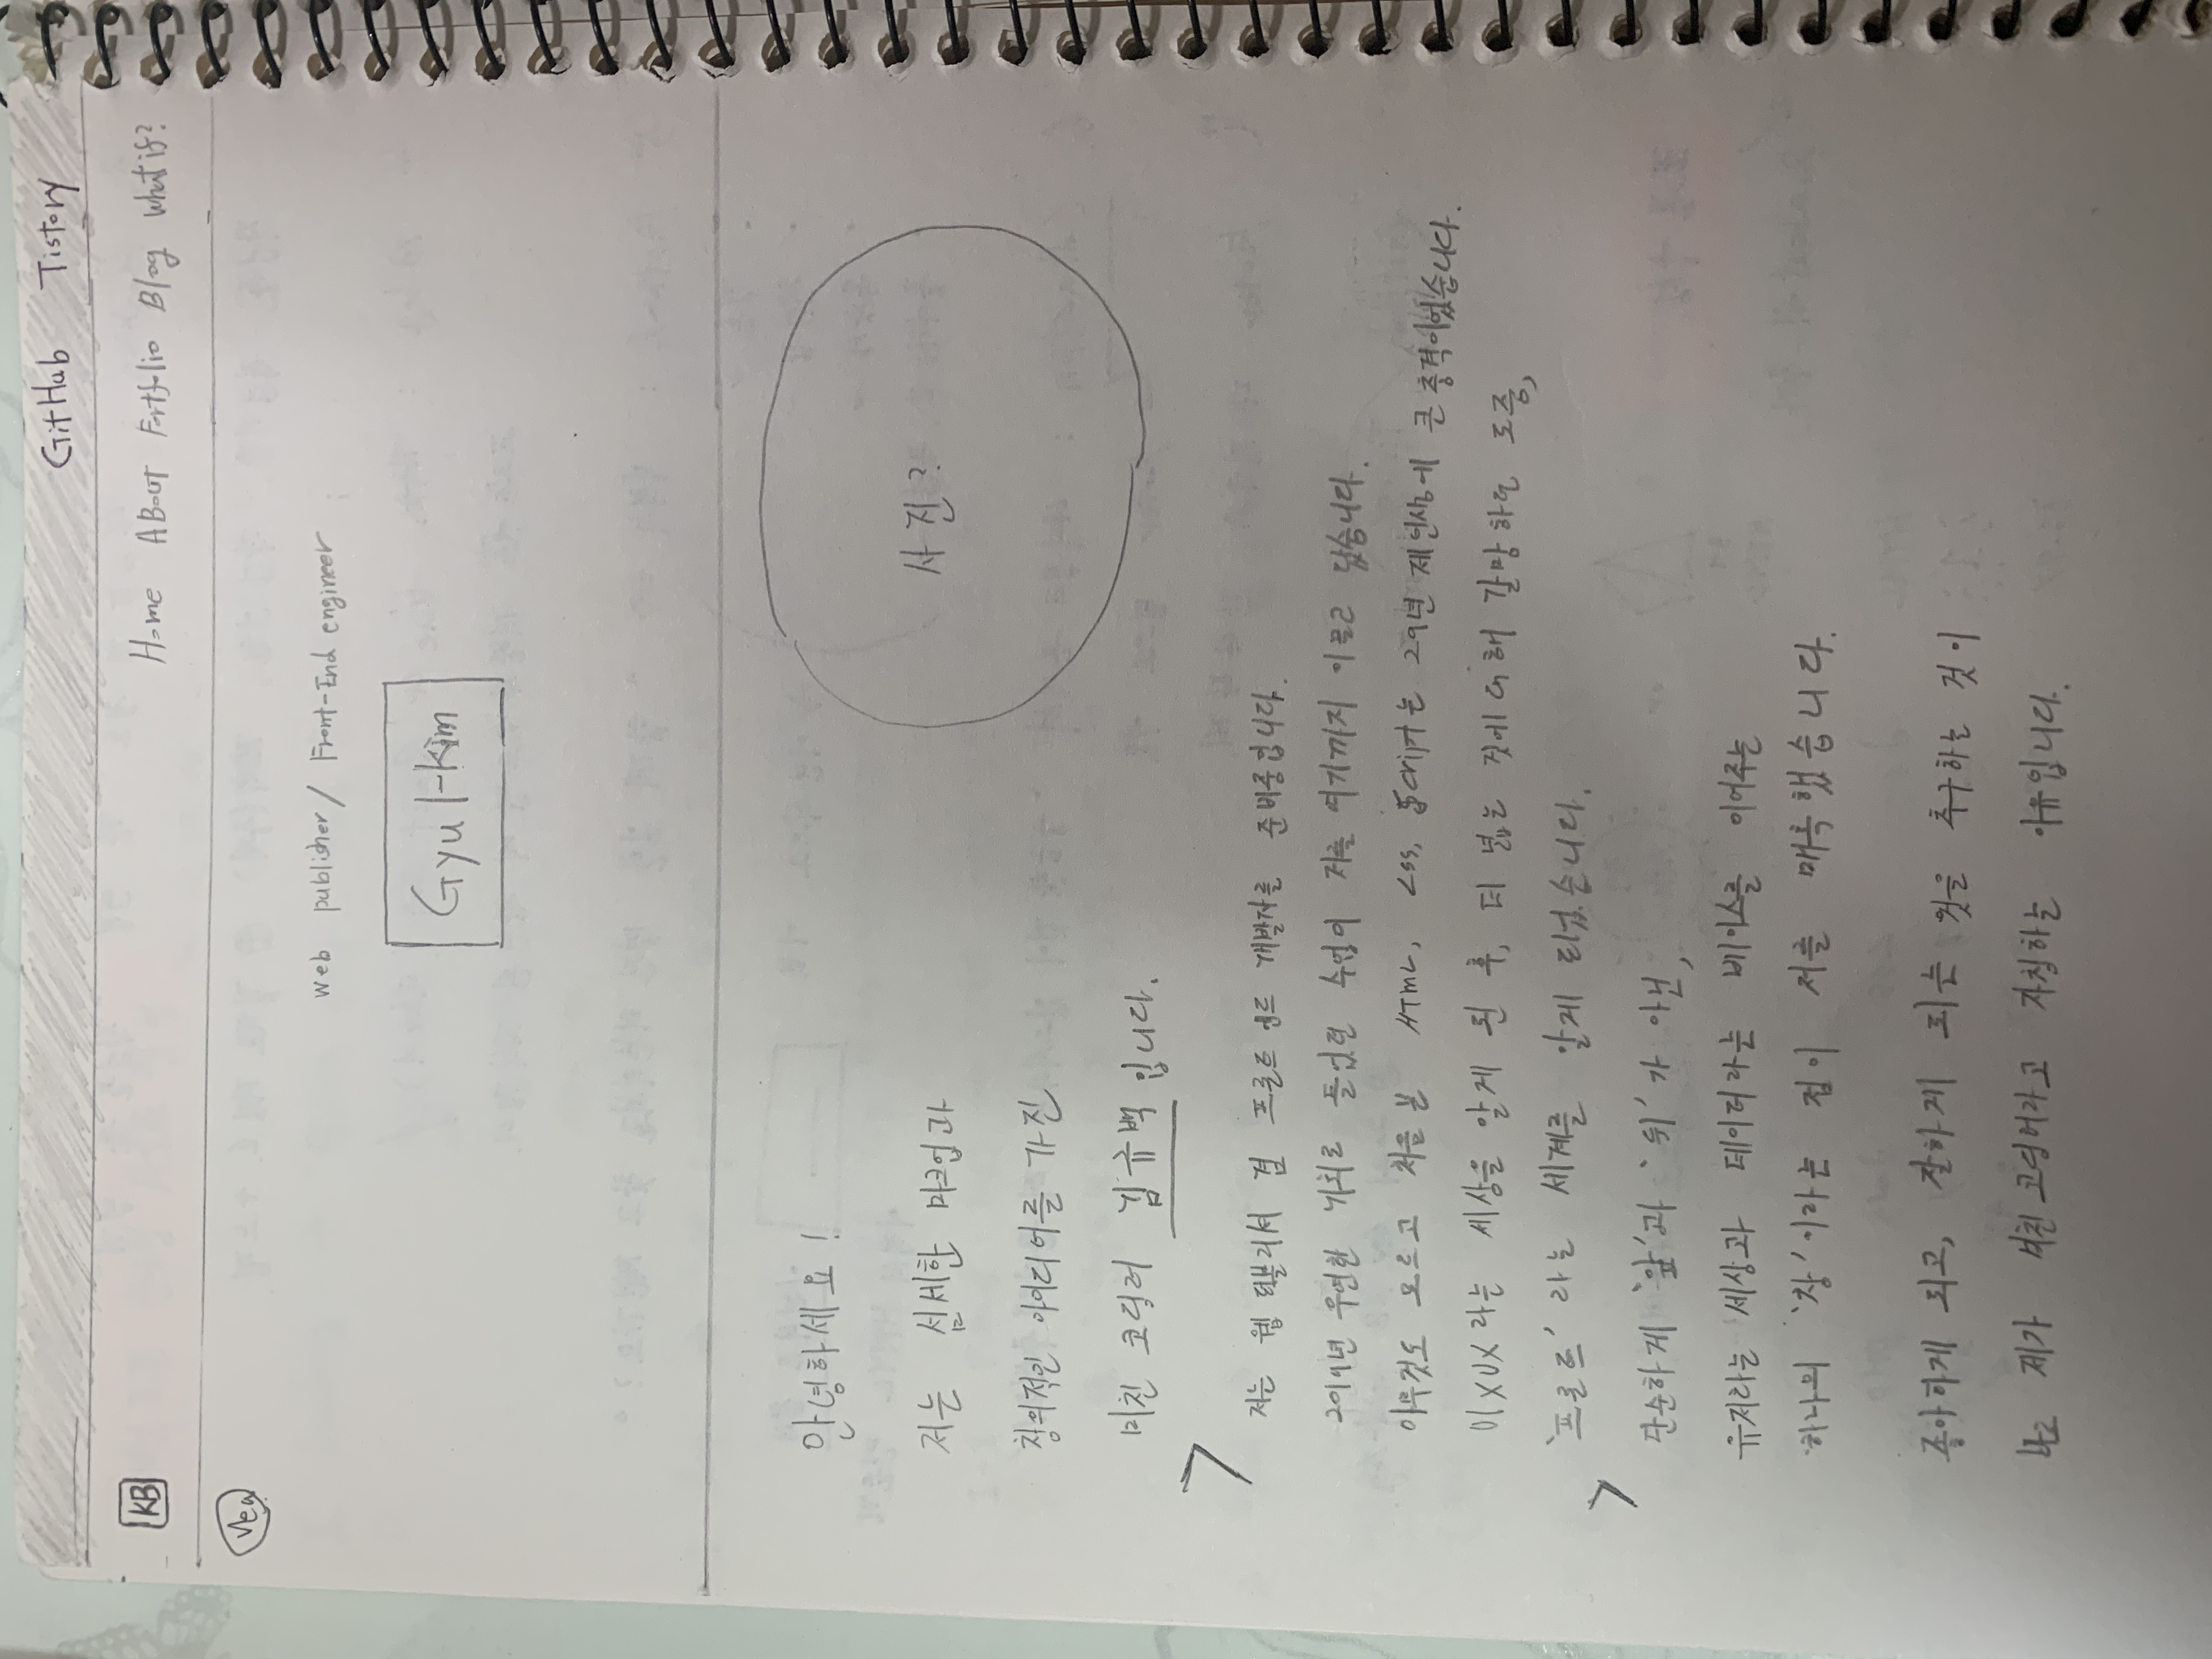 GitHub Tistory
KB
Home ABout Fortfolio Blog what if?
web publisher / Front-End engineer
Gyul-Kim
안녕하세요!
사진?
저는 섬세한 마크업과
창의적인 아이디어를 가진
미친 코딩러 김규백 입니다.
>
저는 웹 퍼블리셔 겸 프론트 엔드 개발자를 준비중입니다.
2019년 우연한 기회로 들었던 수업이 저를 여기까지 이끌고 왔습니다.
아무것도 모르고 처음 본 HTML, CSS, Script는 29년 제 인생에 큰 충격이었습니다.
UI X UX 라는 세상을 알게 된 후, 더 넓은 것에 대해 갈망하던 도중,
'프론트' 라는 세계를 알게 되었습니다.
>
단순하게 '앞'과 '뒤'가 아닌,
유저라는 세상과 데이터라는 베이스를 이어주는
하나의 '창'이라는 점이 저를 매혹했습니다.
좋아하게 되고, 잘하게 되는 것을 추구하는 것이
제가 미친 코딩러라고 자칭하는 이유입니다.